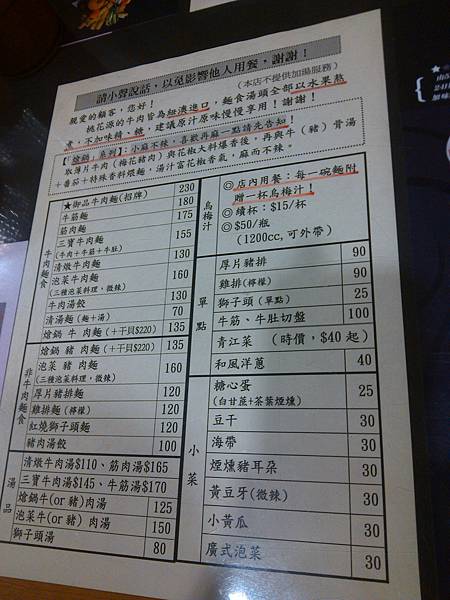 請小聲說話，以免影響他人用餐，謝謝！
（本店不提供加湯服務）
親愛的顧客，您好！
桃花源的牛肉皆為紐澳進口，麵食湯頭全部以水果熬
煮，不加味精、糖，建議原汁原味慢慢享用！謝謝！
【熗鍋 系列】：小麻不辣，喜歡再麻一點請先告知！
取薄片牛肉（梅花豬肉）與花椒大料爆香後，再與牛（豬）骨湯
＋番茄＋特殊香料煨麵，湯汁富花椒香氣，麻而不辣。
牛肉麵食
★御品牛肉麵(招牌) 230
牛筋麵 180
筋肉麵 175
三寶牛肉麵
(牛肉＋牛筋＋牛肚) 155
清燉牛肉麵 130
泡菜牛肉麵
(三種泡菜料理，微辣) 160
牛肉湯餃 130
清湯麵(麵＋湯) 70
熗鍋 牛 肉麵(＋干貝$220) 135
非牛肉麵食
熗鍋 豬 肉麵(＋干貝$220) 135
泡菜 豬 肉麵
(三種泡菜料理，微辣) 160
厚片豬排麵 120
雞排麵 (檸檬) 120
紅燒獅子頭麵 120
豬肉湯餃 100
湯品
清燉牛肉湯$110、筋肉湯$165
三寶牛肉湯$145、牛筋湯$170
熗鍋牛(or 豬)肉湯 125
泡菜牛(or 豬) 肉湯 150
獅子頭湯 80
烏梅汁
◎店內用餐：每一碗麵附
贈一杯烏梅汁！
◎續杯：$15/杯
◎$50/瓶
(1200cc,可外帶)
單點
厚片豬排 90
雞排(檸檬) 90
獅子頭(單點) 25
牛筋、牛肚切盤 100
青江菜 (時價，$40 起)
和風洋蔥 40
小菜
糖心蛋
(白甘蔗+茶葉煙燻) 25
豆干 30
海帶 30
煙燻豬耳朵 30
黃豆牙(微辣) 30
小黃瓜 30
廣式泡菜 30